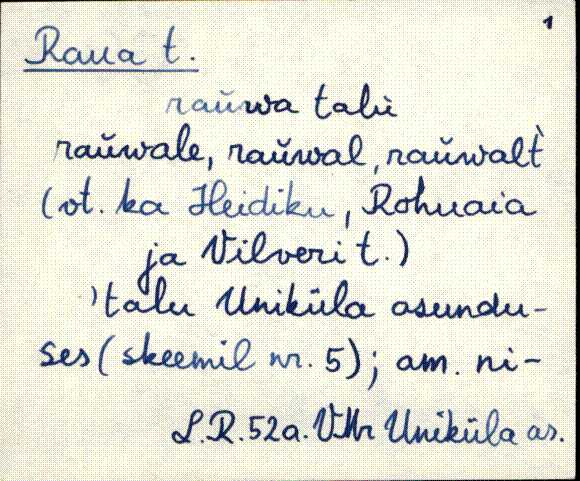 1
Raua t.
raŭwa talù
raŭwale, raŭwal, raŭwalt̀
(vt. ka Heidiku, Rohuaia
ja Vilveri t.)
'talu Uniküla asundu-
ses (skeemil nr. 5); am. ni-
L.R. 52a. VMr Uniküla as.